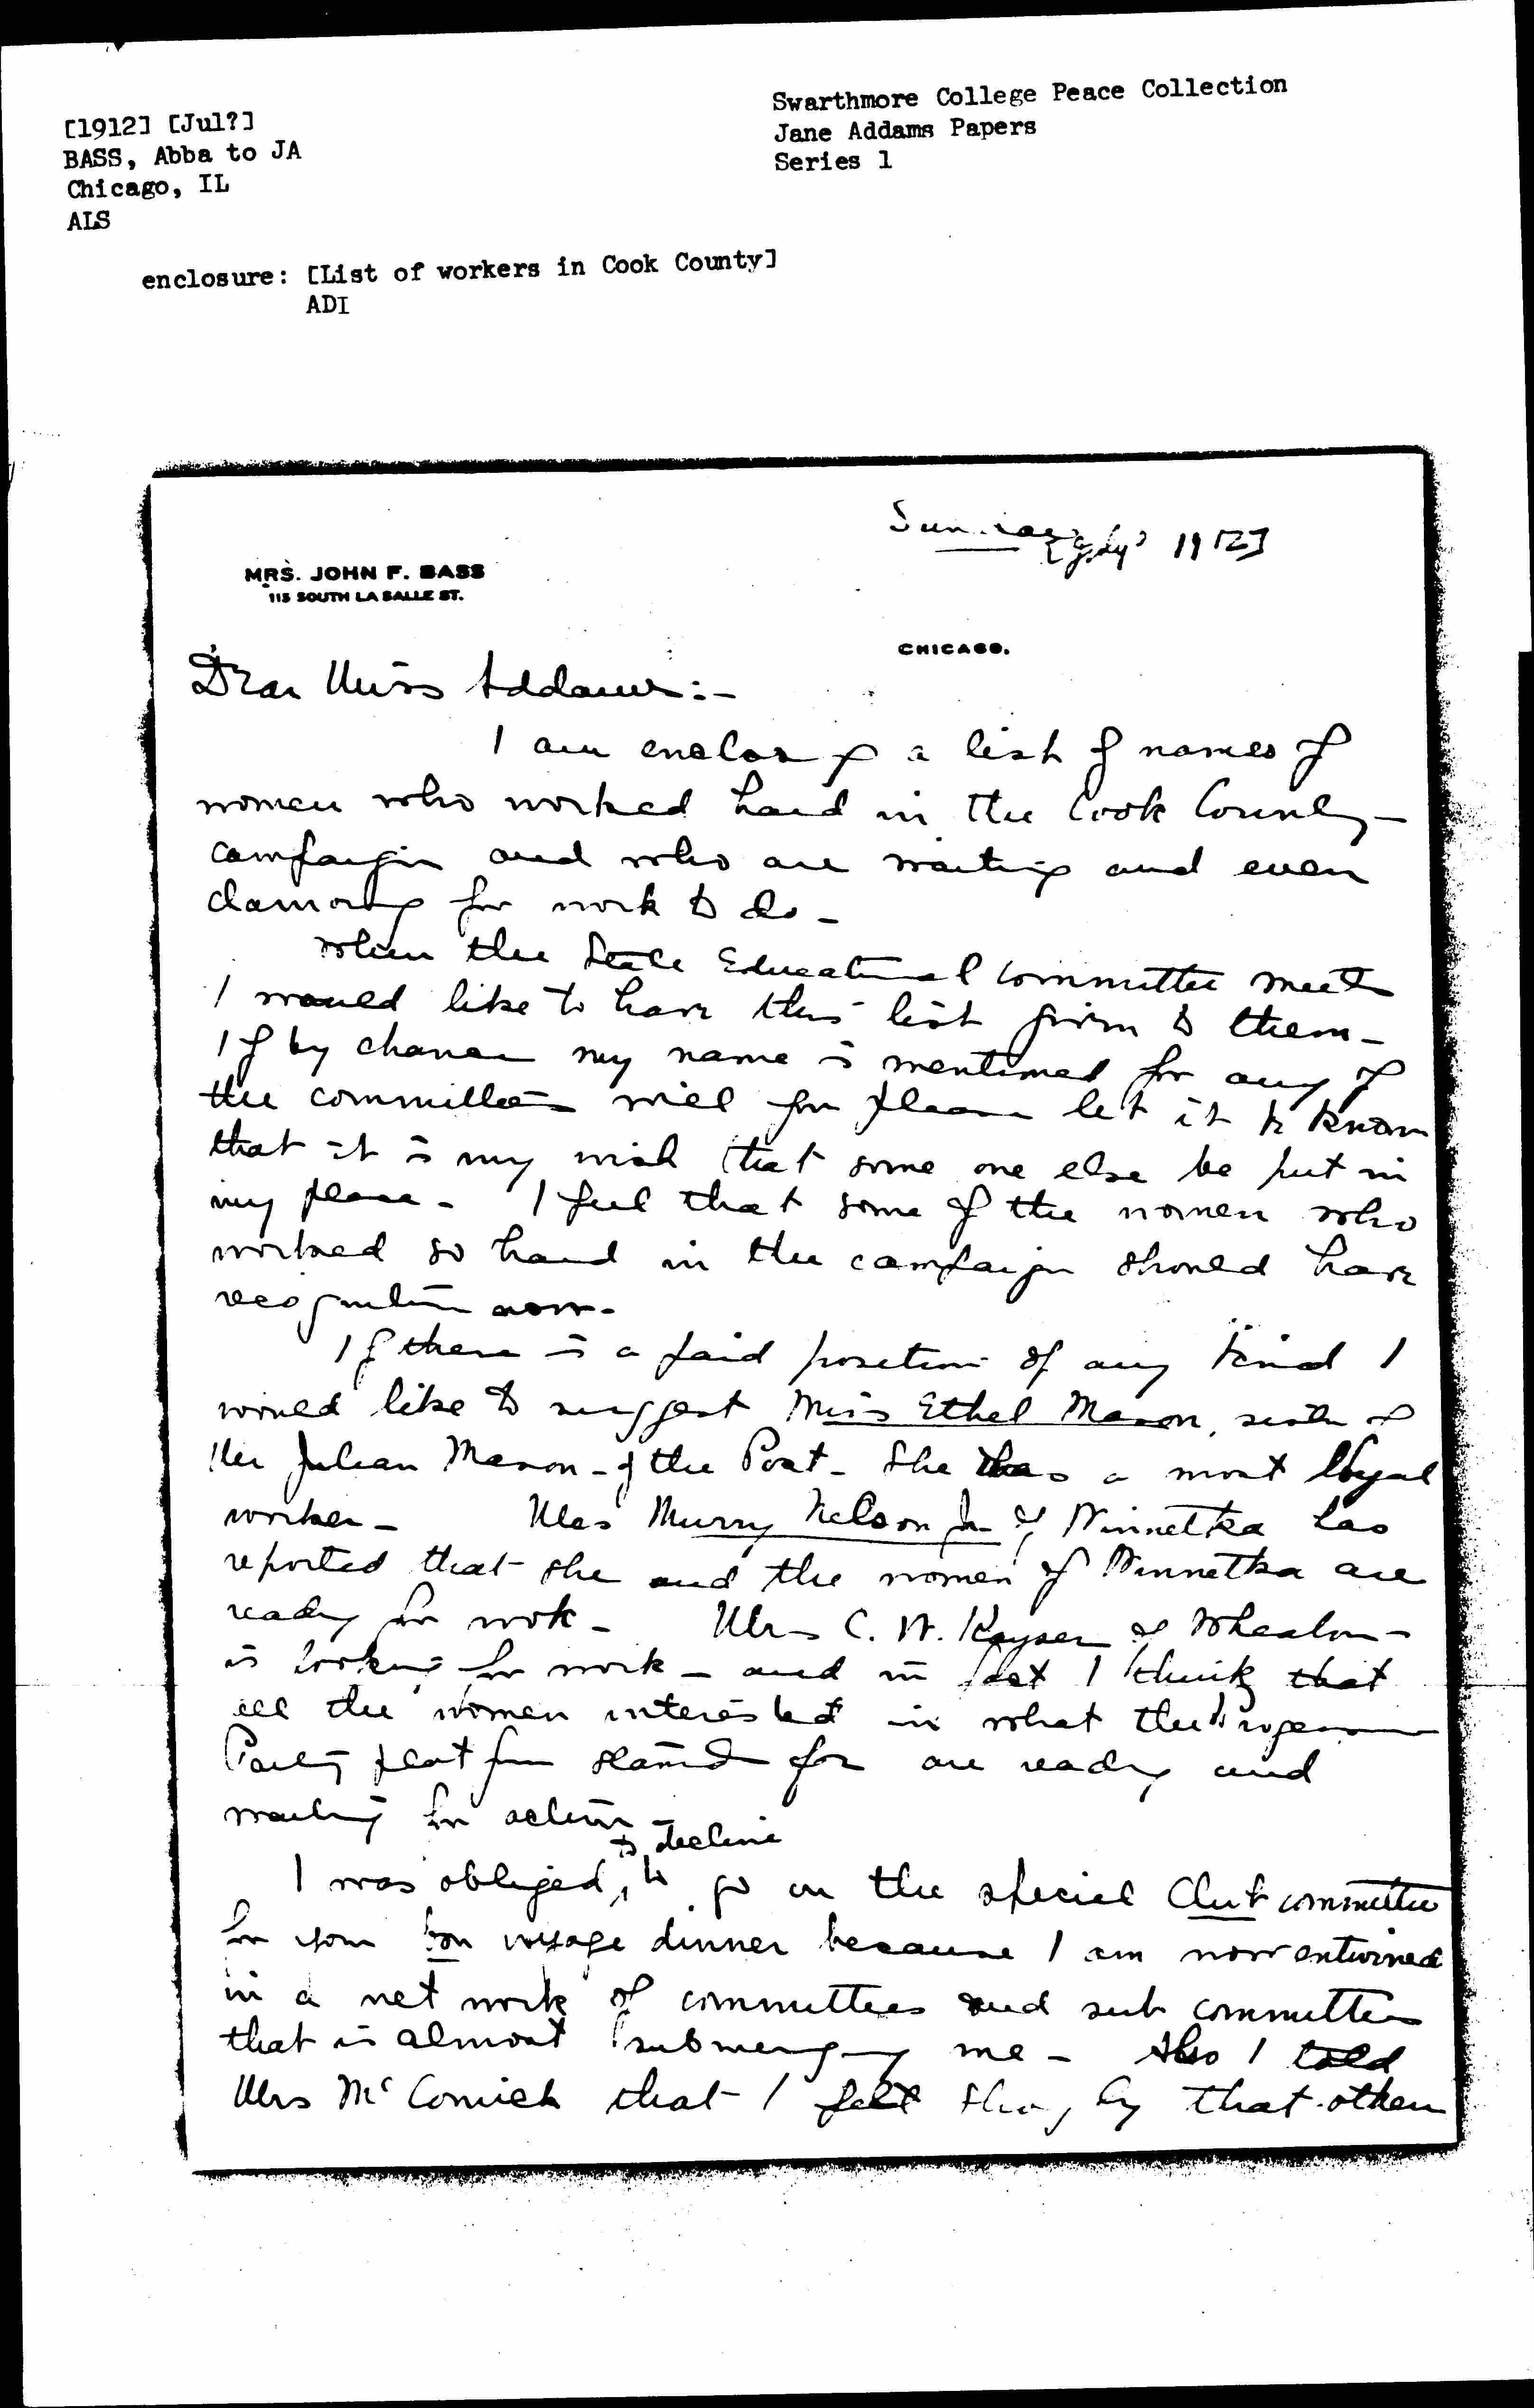 [1912] [Jul?]
BASS, Abba to JA
Chicago, IL
ALS
enclosure: [List of workers in Cook County]
ADI
Swarthmore College Peace Collection
Jane Addams Papers
Series 1
Sunday [July? 1912]
MRS. JOHN F. BASS
115 SOUTH LA SALLE ST.
CHICAGO.
Dear Miss Addams:-
I am enclosing a list of names of
women who worked hard in the Cook County-
campaign and who are waiting and even
clamoring for work to do-
When the State Educational Committee meets
I would like to have this list given to them-
If by chance my name is mentioned for any of
the committees will you please let it be known
that it is my wish that some one else be put in
my place- I feel that some of the women who
worked so hard in the campaign should have
recognition now-
If there is a paid position of any kind I
would like to suggest Miss Ethel Mason, sister of
Mr Julian Mason-of the Post- She was a most loyal
worker- Mrs Murry Nelson Jr of Winnetka has
reported that she and the women of Winnetka are
ready for work- Mrs C. W. Kayser of Wheaton-
is looking for work- and in fact I think that
all the women interested in what the Progressive
Party platform stands for are ready and
waiting for action-
I was obliged, to decline to go on the special Club committee
for your bon voyage dinner because I am now entwined
in a net work of committees and sub committees
that is almost submerging me- Also I told
Mrs McCormick that I felt strongly that other